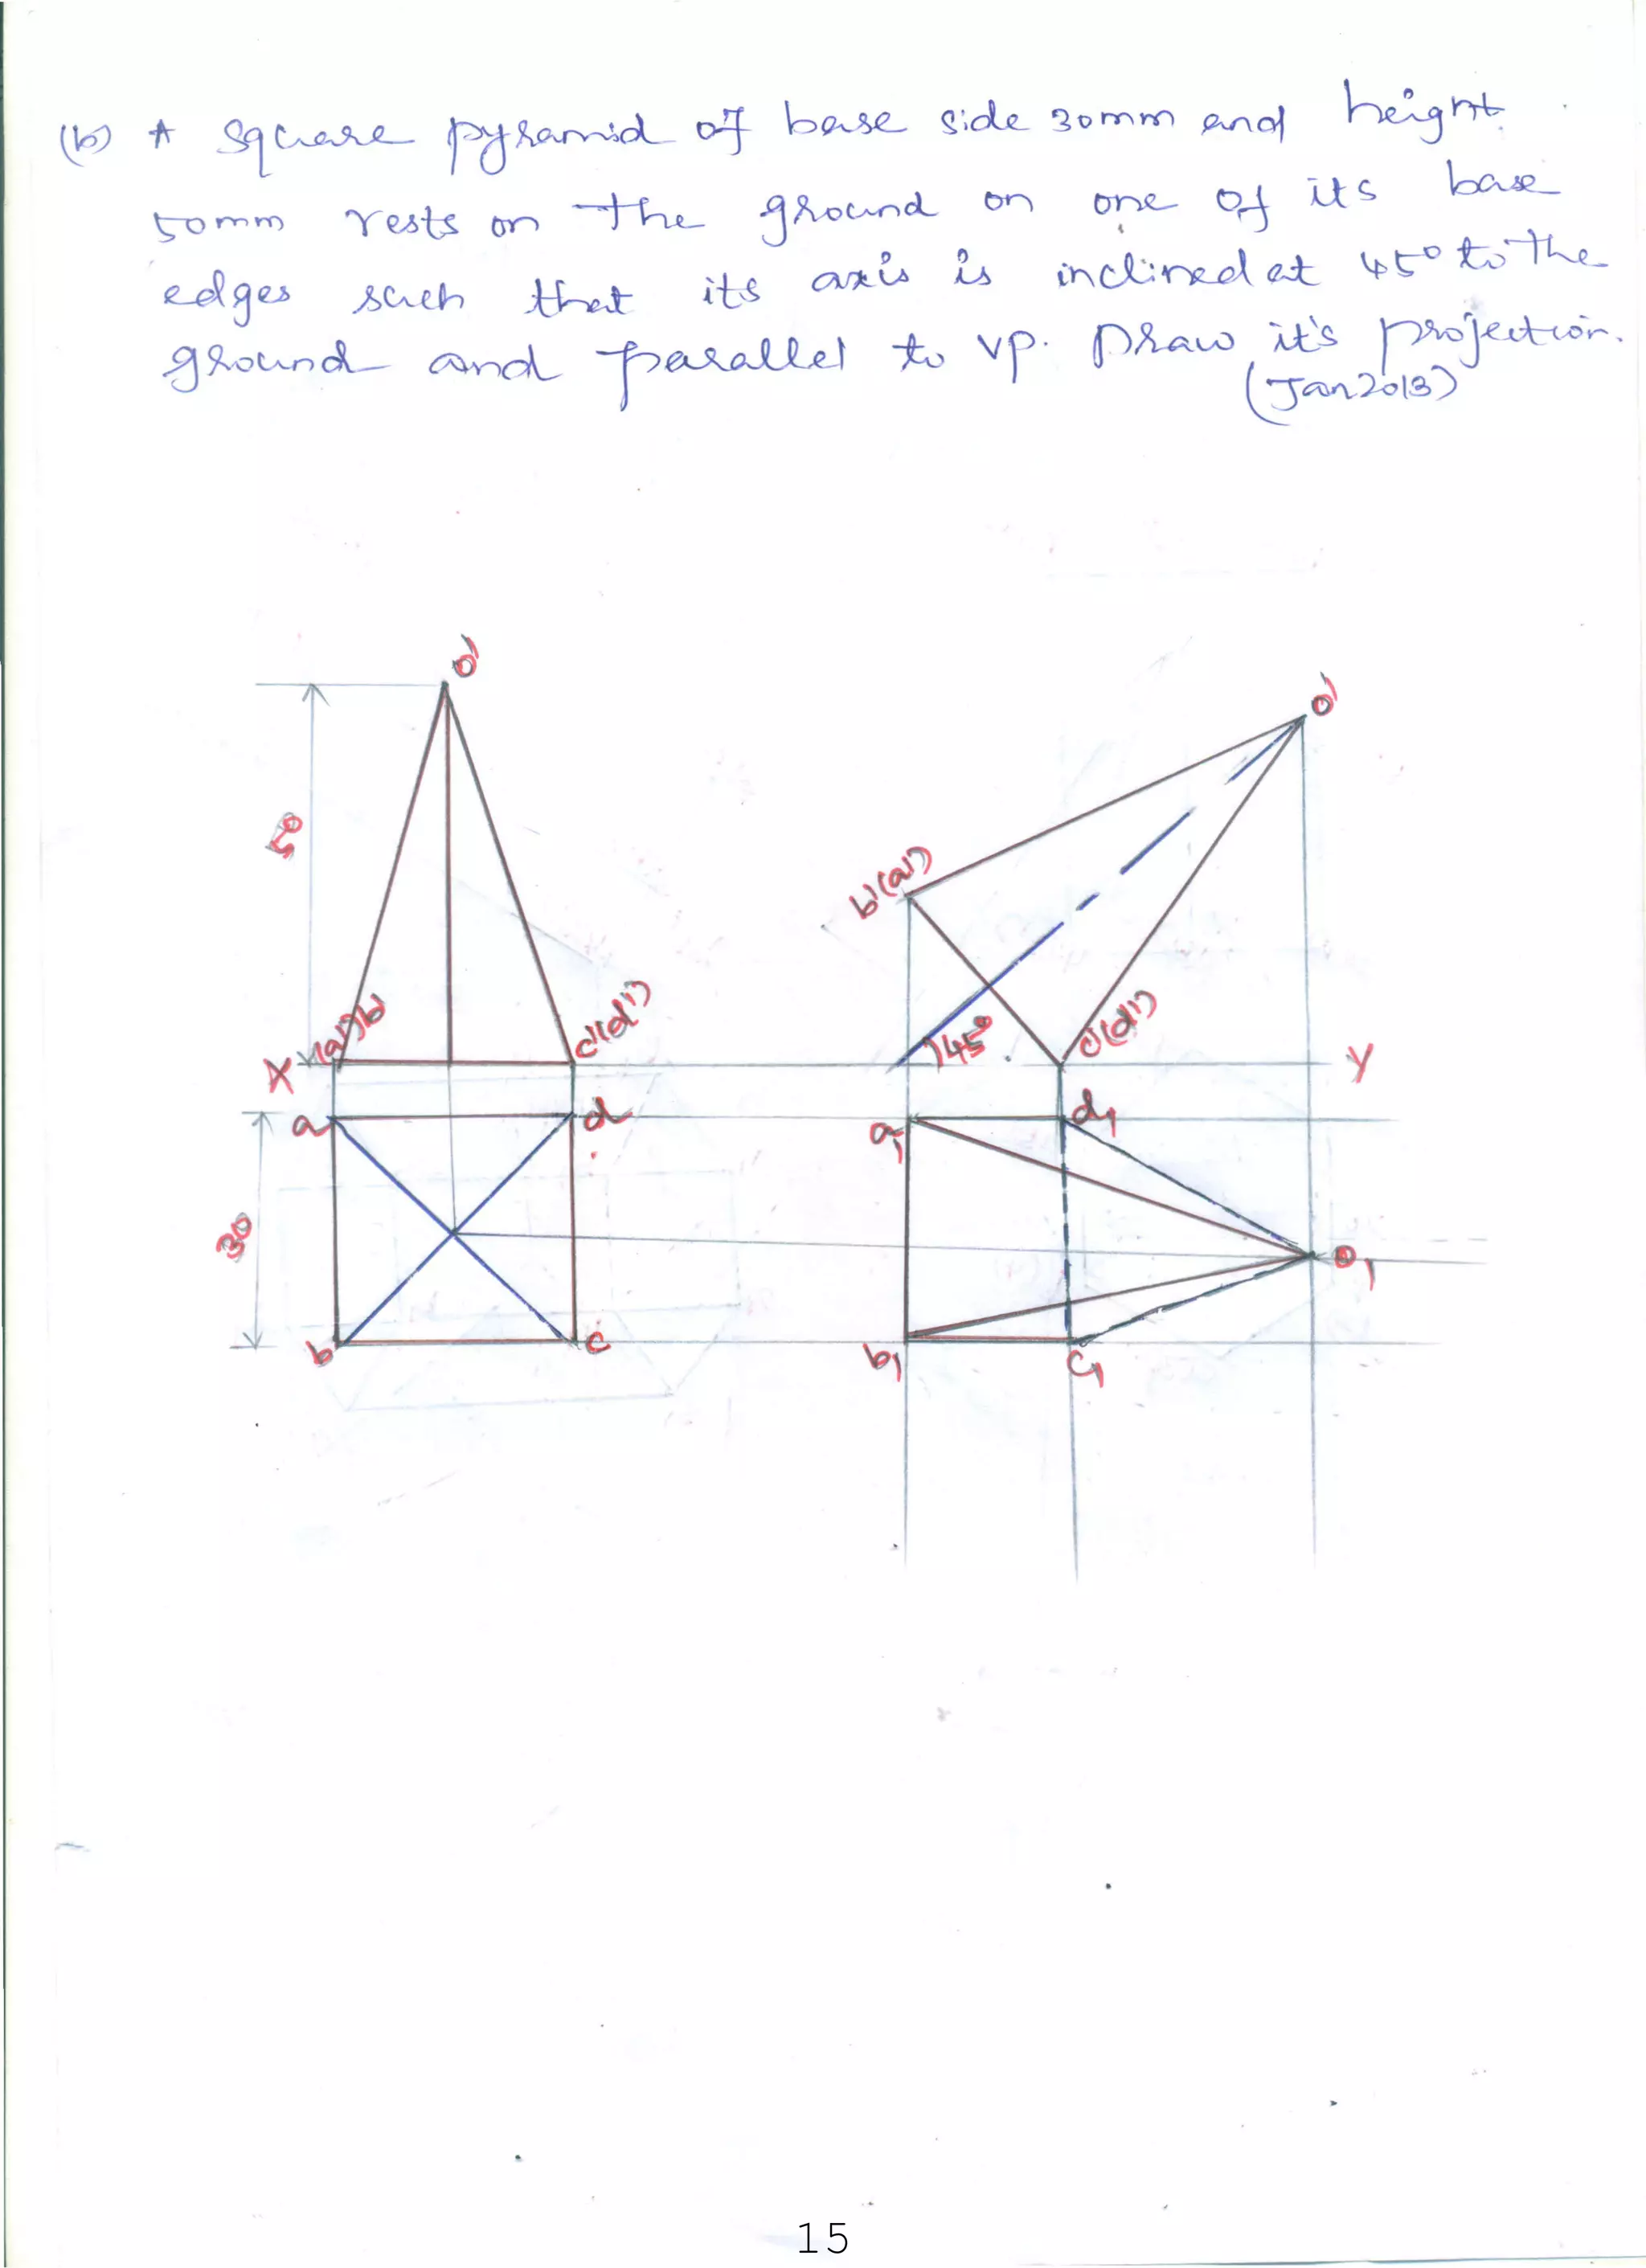 (b) A square pyramid of base side 30mm and height
50mm rests on the ground on one of its base
edges such that its axis is inclined at 45° to the
ground and parallel to VP. Draw it's projection.
(Jan 2013)
o'
o'
50
b'(a')
(a')b'
c'(d')
45°
c'(d')
X
Y
a
d
a1
d1
30
o1
b
c
b1
c1
15